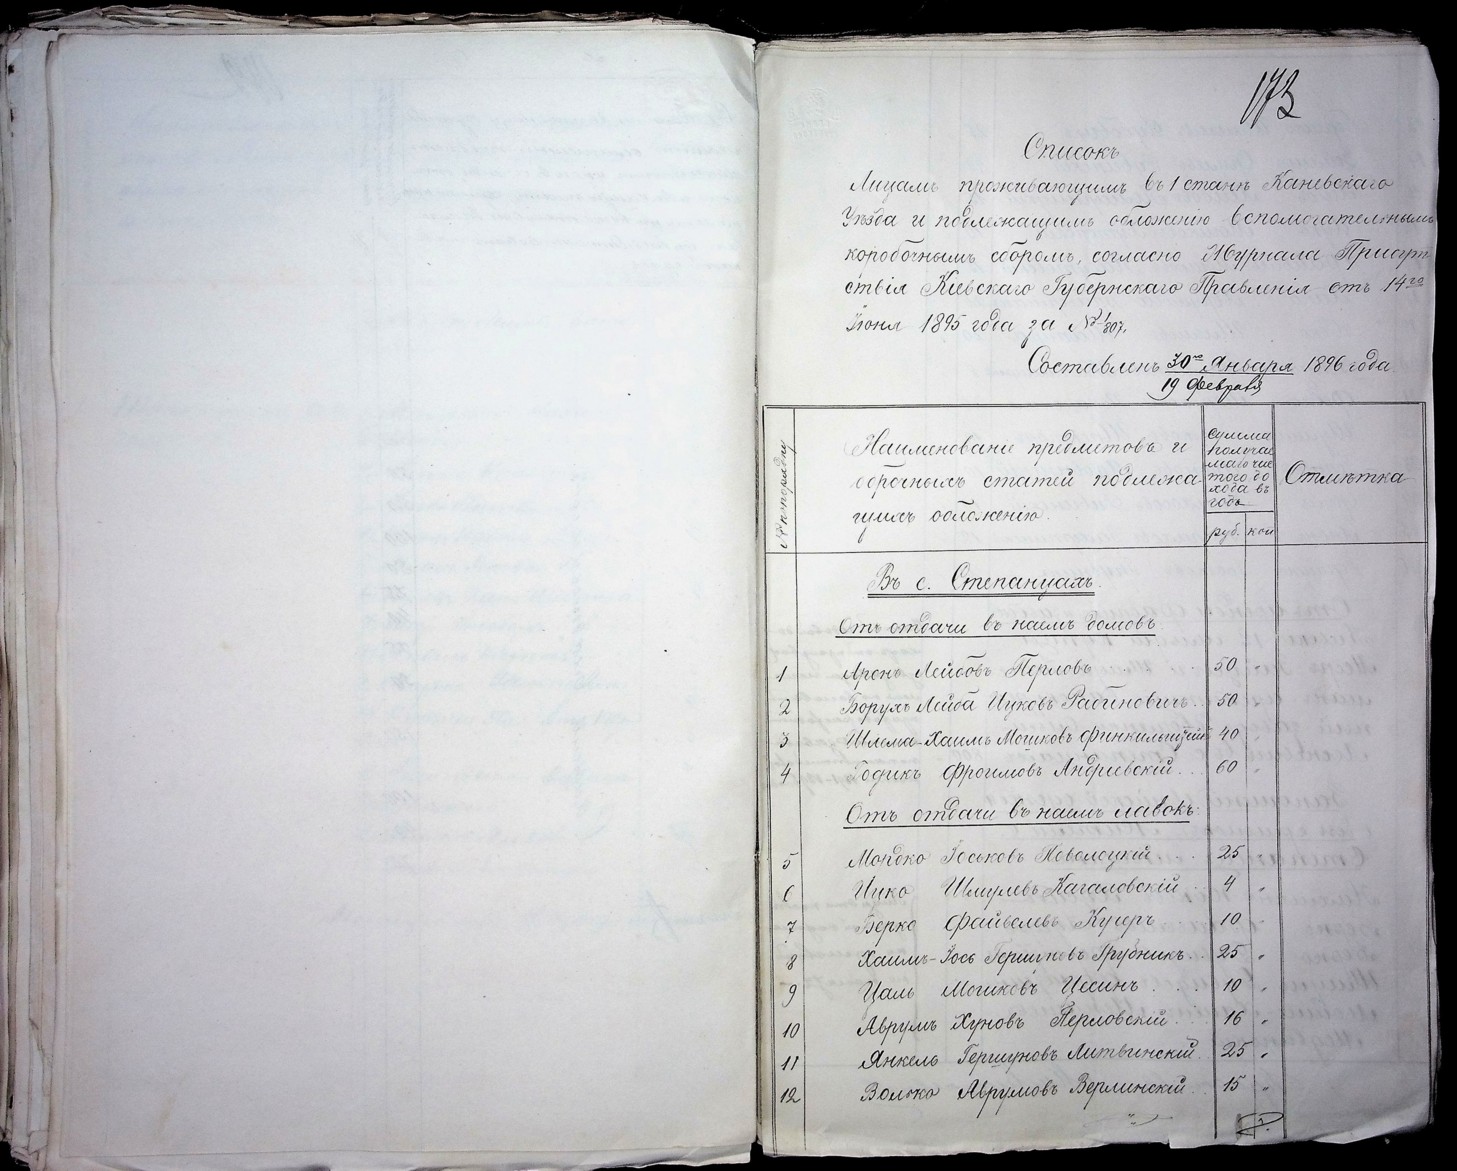 173
Списокъ
Лицамъ проживающимъ въ 1 станѣ Каневскаго
Уѣзда и подлежащимъ обложенію вспомогательнымъ
коробочнымъ сборомъ, согласно Журнала Присут
ствія Кіевскаго Губернскаго Правленія отъ 14го
Іюня 1895 года за №
Составленъ 30го Января 1896 года
19 Февраля
№ по порядку
Наименованіе предметовъ и
оброчныхъ статей подлежа-
щихъ обложенію.
Сумма
получае
маго
того до
хода въ
годъ
руб. коп
Отмѣтка
Въ с. Степанцахъ.
Отъ отдачи въ наемъ домовъ
1 Аронъ Лейбовъ Перловъ 50 "
2 Борухъ Лейба Ицковъ Рабиновичъ 50 "
3 Шлема-Хаимъ Мошковъ 40 "
4 Годикъ Фроимовъ Андріевскій 60 "
Отъ отдачи въ наемъ лавокъ:
5 Мордко Іоськовъ Новолоцкій 25 "
6 Ицко Шмулевъ Кагаловскій 4 "
7 Берко Файвелевъ Кучеръ 10 "
8 Хаимъ-Іось Гершковъ Грубникъ 25 "
9 Цаль Мошковъ Цесинъ 10 "
10 Аврумъ Хуновъ Перловскій 16 "
11 Янкель Гершуновъ Литвинскій 25 "
12 Волько Аврумовъ Верлинскій 15 "